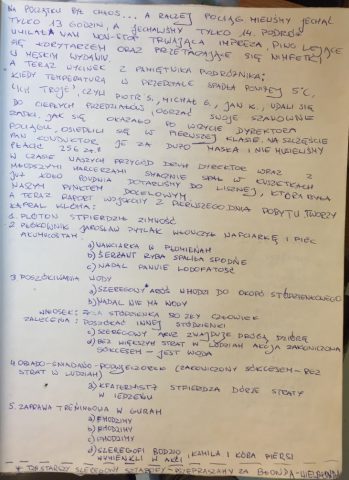 NA POCZĄTKU BYŁ CHAOS... A RACZEJ POCIĄG. MIELIŚMY JECHAĆ
TYLKO 13 GODZIN, A JECHALIŚMY TYLKO 14. PODRÓŻ
UMILAŁA NAM NON-STOP TRWAJĄCA IMPREZA, PIWO LEJĄCE
SIĘ KORYTARZEM ORAZ PRZETACZAJĄCE SIĘ NIMFETKI
W MĘSKIM WYDANIU
A TERAZ WYCINEK Z PAMIĘTNIKA PODRÓŻNIKA:
KIEDY TEMPERATURA W PRZEDZIALE SPADŁA PONIŻEJ 5°C,
ICH TROJE, CZYLI PIOTR S., MICHAŁ G., JAN K., UDALI SIĘ
DO CIEPŁYCH PRZEDZIAŁÓW, OGRZAĆ SWOJE SZANOWNE
ZADKI, JAK SIĘ OKAZAŁO PO WIZYCIE DYREKTORA
POCIĄGU, OSIEDLILI SIĘ W PIERWSZEJ KLASIE. NA SZCZĘŚCIE
PAN KONDUCTOR JE ZA DUPO MASKA I NIE MUSIELIŚMY
PŁACIĆ 296 ZŁ.
W CZASIE NASZYCH PRZYGÓD DRUH DIREKTOR WRAZ Z
MŁODSZYMI HARCERZAMI SMACZNIE SPAŁ W KUSZETKACH
JUŻ KOŁO POŁUDNIA DOTARLIŚMY DO LIŚNEJ, KTÓRA BYŁA
NASZYM PUNKTEM DOCELOWYM.
A TERAZ RAPORT WOJSKOWY Z PIERWSZEGO DNIA POBYTU TWORZY
1. PLUTON STFIERDZIŁ ZIMNOŚĆ
2. PÓŁKOWNIK JAROSŁAW PYTLAK WKONCZYŁ NAFCIARKĘ I PIEC
AKUMÓRATEM:
a) NAWCIARKA W PŁOMIENIAH
b) SERZANT RYBA SPALIŁA SPODNE
c) NADAL PANUIE LODOFATOŚĆ
3. POSZÓKIWANIA WODY
a) SZEREGOWY WHODZI DO OKOPÓ STÓDZIENKOWEGO
b) NADAL NIE MA WODY
WNIOSEK: ZŁA STÓDZIENKA BO ZŁY CZŁOWIEK
ZALECENIA: POSZÓKAĆ INNEJ STÓDZIENKI
c) SZEREGOWY ZNAJDUJE DROGĄ DZIÓRĘ
d) BEZ WIĘKSZYH STRAT W LÓDZIAH AKCJA ZAKOŃCZONA
SÓKCESEM - JEST WODA
4. OBADO-SNIADANIO-PODWJECZOREK (ZAKOŃCZONY SÓKCESEM - BEZ
STRAT W LUDZIAH)
a) KFATERMISTZ STFIERDZA DÓRZE STRATY
W IEDZENIU
5. ZAPRAWA TRÉNINGOWA W GURAH
a) FHODZIMY
b) FHODZIMY
c) FHODZIMY
d) SZEREGOFI BODZIO, KAMILA I KÓRA PIERSI